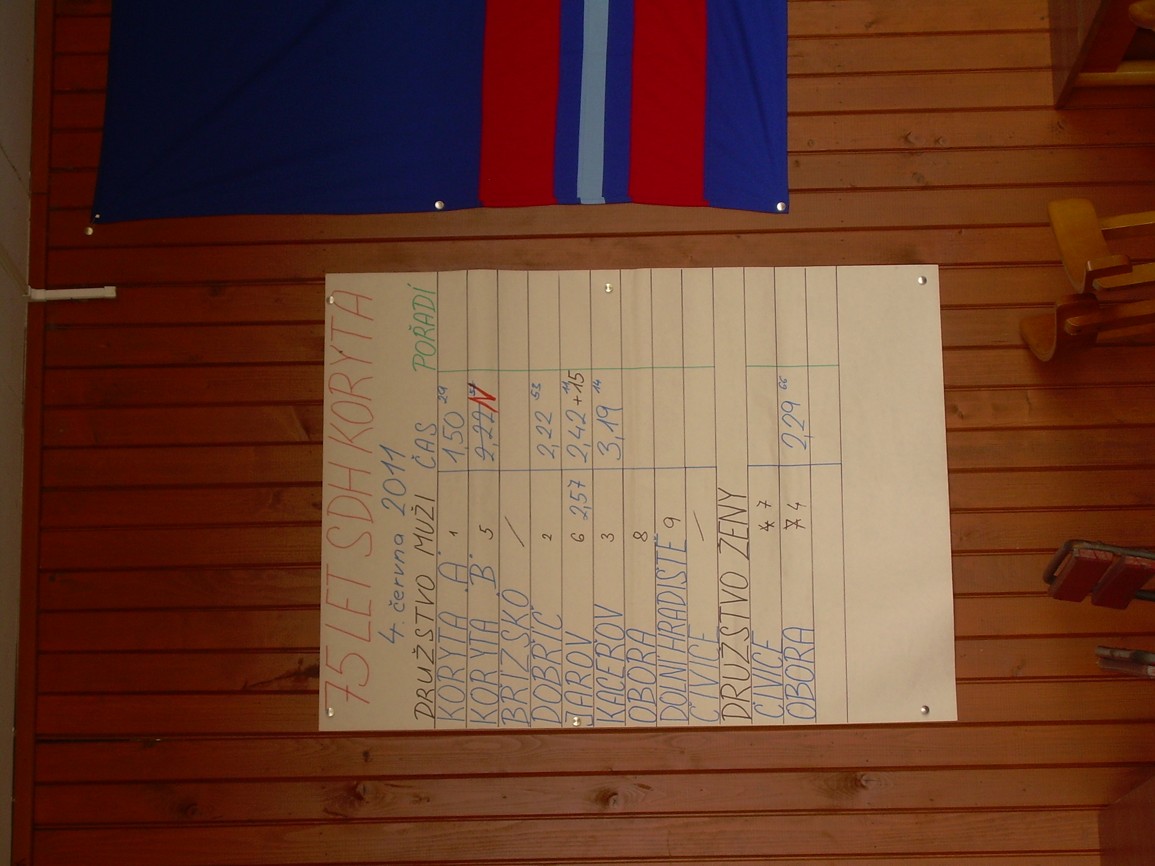 75 LET SDH KORYTA
4. června 2011
DRUŽSTVO MUŽI ČAS POŘADÍ
KORYTA "A" 1 1,50 29
KORYTA "B" 5 2,22 N
BŘÍZSKO /
DOBŘÍČ 2 2,22 53
JAROV 6 2,57 2,42 +15
KACEŘOV 3 3,19 14
OBORA 8
DOLNÍ HRADIŠTĚ 9
ČIVICE /
DRUŽSTVO ŽENY
ČIVICE 4 7
OBORA 7 4 2,29 66